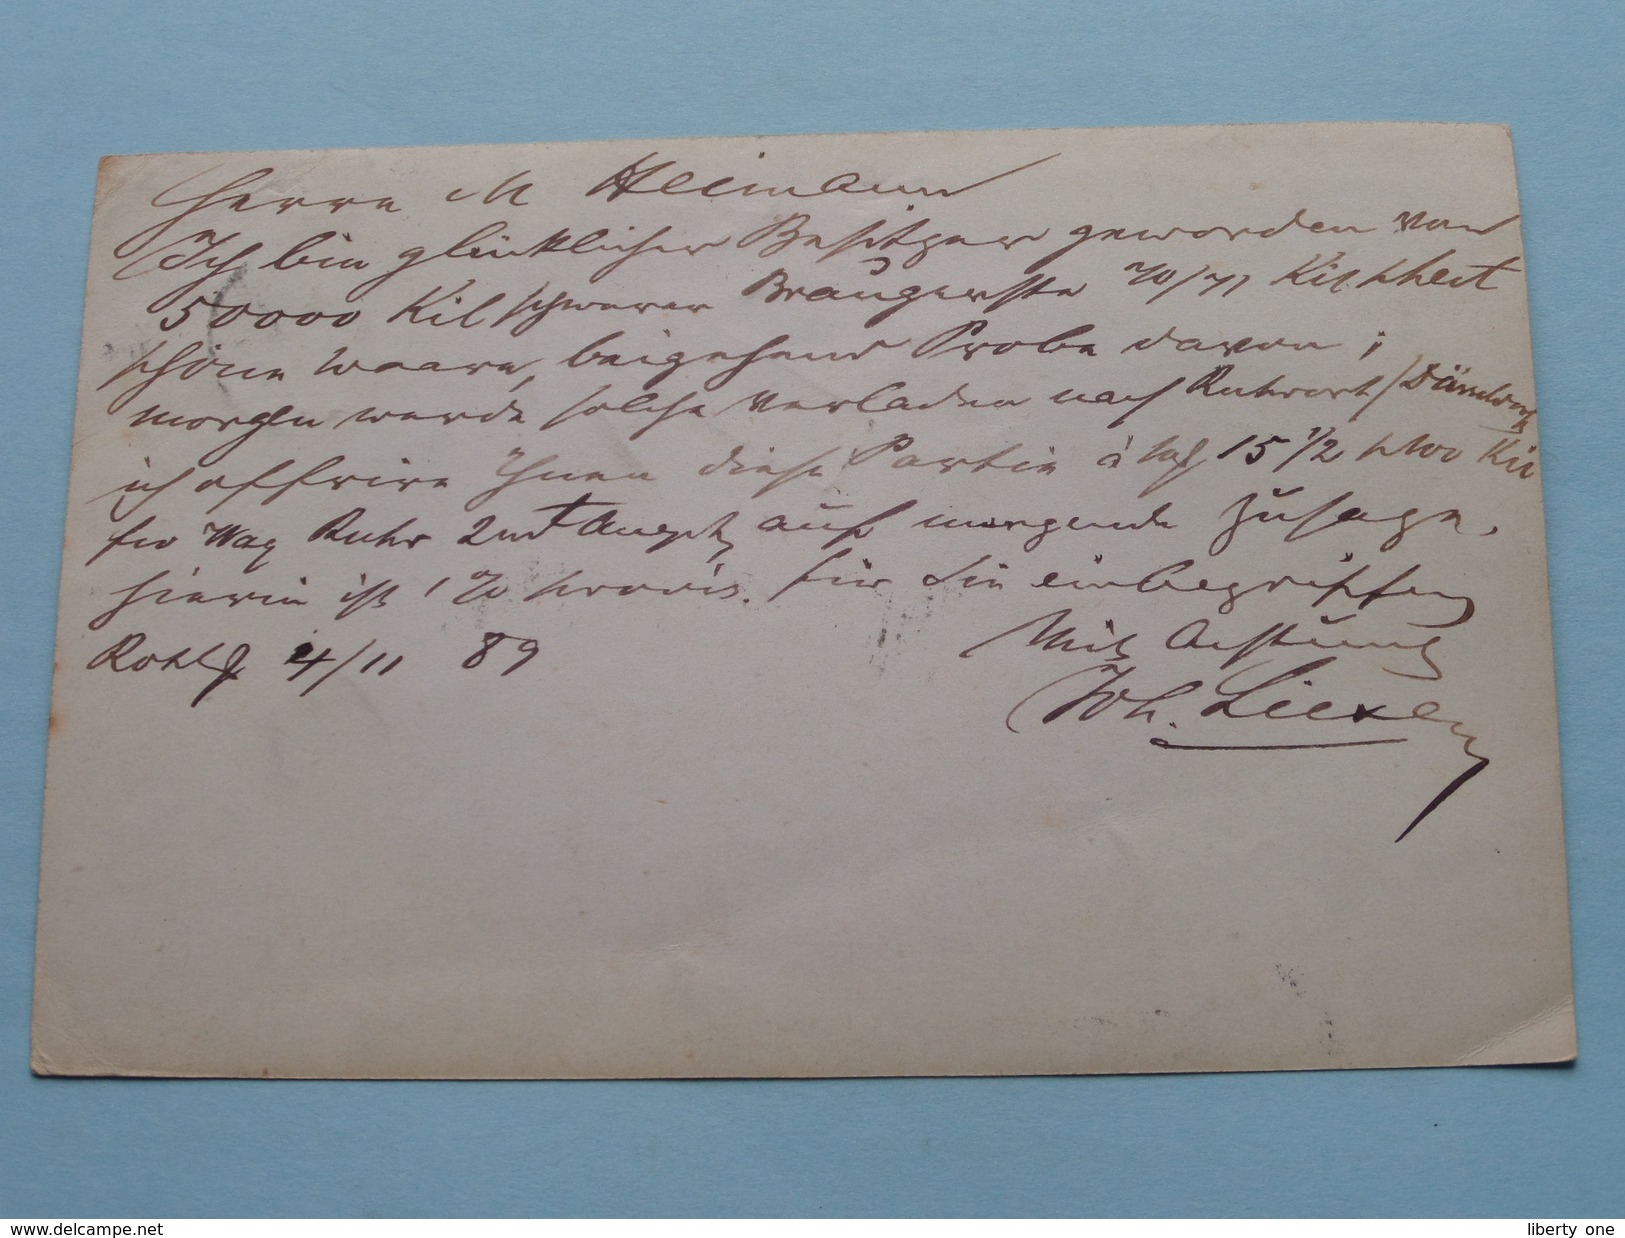 Herrn M Heimann
Ich bin glücklicher Besitzer geworden von
50000 Kil schwerer Braugerste 70/71 Kil p hect
schöne Waare, beigehend Probe davon;
morgen werde solche verladen nach Ruhrort/
ich offrire Ihnen diese Partie à 15 1/2 p 100 Kil
fro Wag Ruhr auf morgende Zusage.
hierin ist 1 % provis. für Sie einbegriffen
Mit Achtung
4/11 89
Joh.
delcampe.net
liberty_one